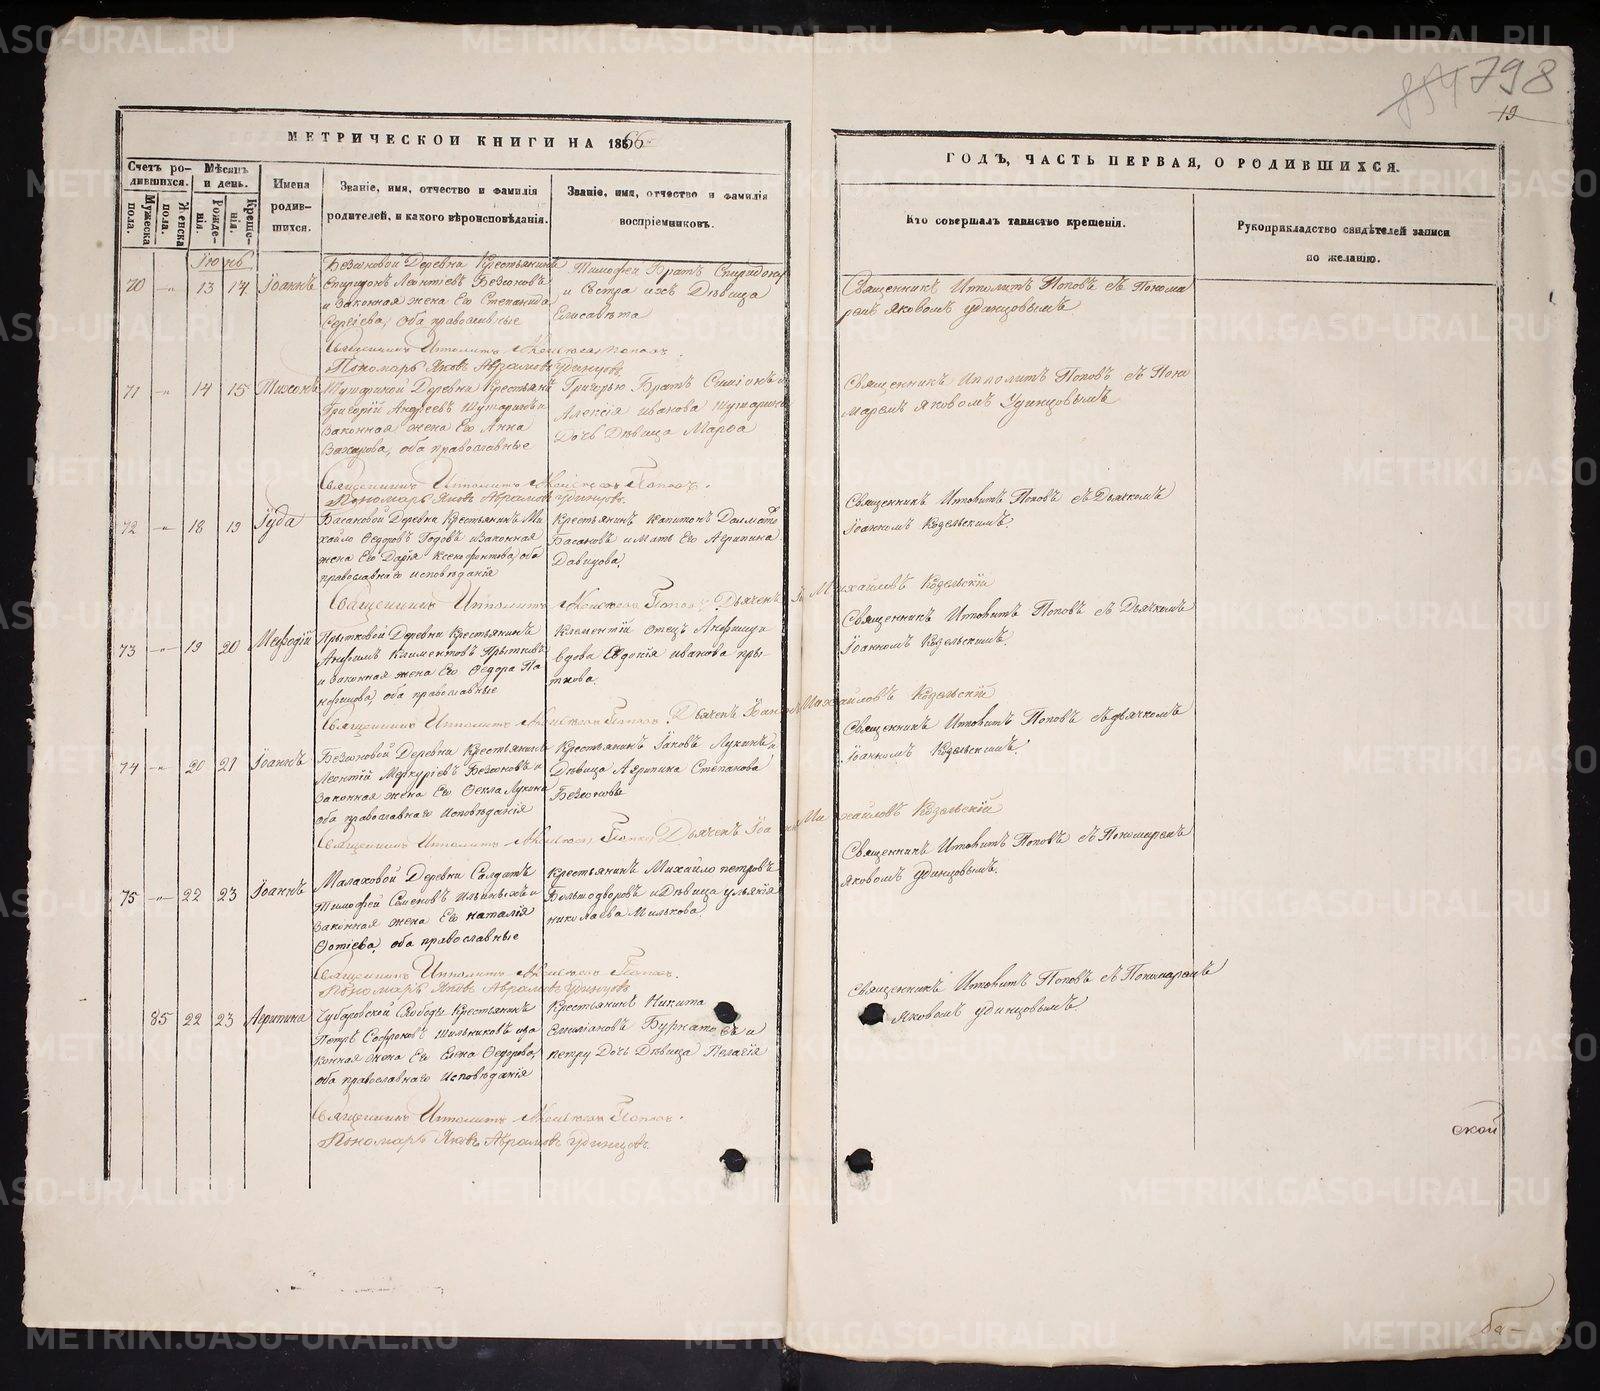 798
19
МЕТРИЧЕСКОЙ КНИГИ НА 1866
ГОДЪ, ЧАСТЬ ПЕРВАЯ, О РОДИВШИХСЯ.
Счетъ родившихся.
Мужеска пола.
Женска пола.
Мѣсяцъ и день.
Рожденія.
Крещенія.
Имена родившихся.
Званіе, имя, отчество и фамилія
родителей, и какого вѣроисповѣданія.
Званіе, имя, отчество и фамилія
воспріемниковъ.
Кто совершалъ таинство крещенія.
Рукоприкладство свидѣтелей записи
по желанію.
Іюнь
70 13 14 Іоаннъ
Деревни Крестьянинъ
Спиридонъ Леонтіевъ
и Законная жена Его Степанида
Сергіева, оба православные
Тимофей Братъ Спиридону
и Сестра ихъ Дѣвица
Елисавета
Священникъ Ипполитъ Поповъ съ Понома
ремъ Яковомъ Удинцовымъ
Священникъ Ипполитъ Поповъ.
Пономарь Яковъ Аврамовъ Удинцовъ.
71 14 15 Тихонъ
Деревни Крестьян
Григорій Андреевъ
Законная жена Его Анна
Захарова, оба православные
Григорью Братъ Симіонъ и
Алексія Иванова
Дочь Дѣвица Марѳа
Священникъ Ипполитъ Поповъ съ Поно
маремъ Яковомъ Удинцовымъ
Священникъ Ипполитъ Поповъ.
Пономарь Яковъ Аврамовъ Удинцовъ.
72 18 19 Іуда
Басановой Деревни Крестьянинъ Ми
хайло Ѳедоровъ Законная
жена Его Дарія Ксенофонтова, оба
православнаго исповѣданія
Крестьянинъ Капитонъ
Басановъ и Мать Его Агрипина
Давидова.
Священникъ Ипполитъ Поповъ съ Дьячкомъ
Іоанномъ Козельскимъ
Священникъ Ипполитъ Поповъ. Дьячекъ Михайловъ Козельскій
73 19 20 Меѳодій
Прытковой Деревни Крестьянинъ
Анфимъ Климентовъ Прытковъ
и Законная жена Его Ѳедора Па
оба православные
Климентій отецъ Анфима и
Вдова Евдокія Иванова Пры
ткова.
Священникъ Ипполитъ Поповъ съ Дьячкомъ
Іоанномъ Козельскимъ.
Священникъ Ипполитъ Поповъ. Дьячекъ Іоаннъ Михайловъ Козельскій
74 20 21 Іоаннъ
Деревни Крестьянинъ
Леонтій Меркуріевъ
Законная жена Его Ѳекла Лукина
оба православнаго Исповѣданія
Крестьянинъ Іаковъ Лукинъ и
Дѣвица Агрипина Степанова
Священникъ Ипполитъ Поповъ съ Дьячкомъ
Іоанномъ Козельскимъ.
Священникъ Ипполитъ Поповъ Дьячекъ Іоаннъ Михайловъ Козельскій
75 22 23 Іоаннъ
Малаховой Деревни Солдатъ
Тимофей Семеновъ Ильиныхъ и
Законная жена Его Наталія
Фотіева, оба православные
Крестьянинъ Михайло Петровъ
Большодворовъ и Дѣвица Ульянія
Николаева Милькова.
Священникъ Ипполитъ Поповъ съ Пономаремъ
Яковомъ Удинцовымъ.
Священникъ Ипполитъ Поповъ.
Пономарь Яковъ Аврамовъ Удинцовъ
85 22 23 Агрипина
Чубаровской Слободы Крестьянинъ
Петръ Софроновъ и за
конная жена Его Елена Ѳедорова,
оба православнаго Исповѣданія
Крестьянинъ Никита
Емиліановъ и
Петру Дочь Дѣвица Пелагія
Священникъ Ипполитъ Поповъ съ Пономаремъ
Яковомъ Удинцовымъ
Священникъ Ипполитъ Поповъ.
Пономарь Яковъ Аврамовъ Удинцовъ.
ской
ба-
METRIKI.GASO-URAL.RU